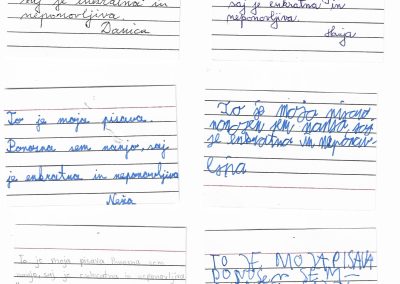 saj je enkratna in
neponovljiva.
Danica
saj je enkratna in
neponovljiva.
To je moja pisava.
Ponosna sem nanjo, saj
je enkratna in neponovljiva
Neža
To je moja pisava
sem nanjo saj
je enkratna in neponov
To je moja pisava Ponosna sem
nanjo, saj je enkratna in neponovljiva
TO JE MOJA PISAVA